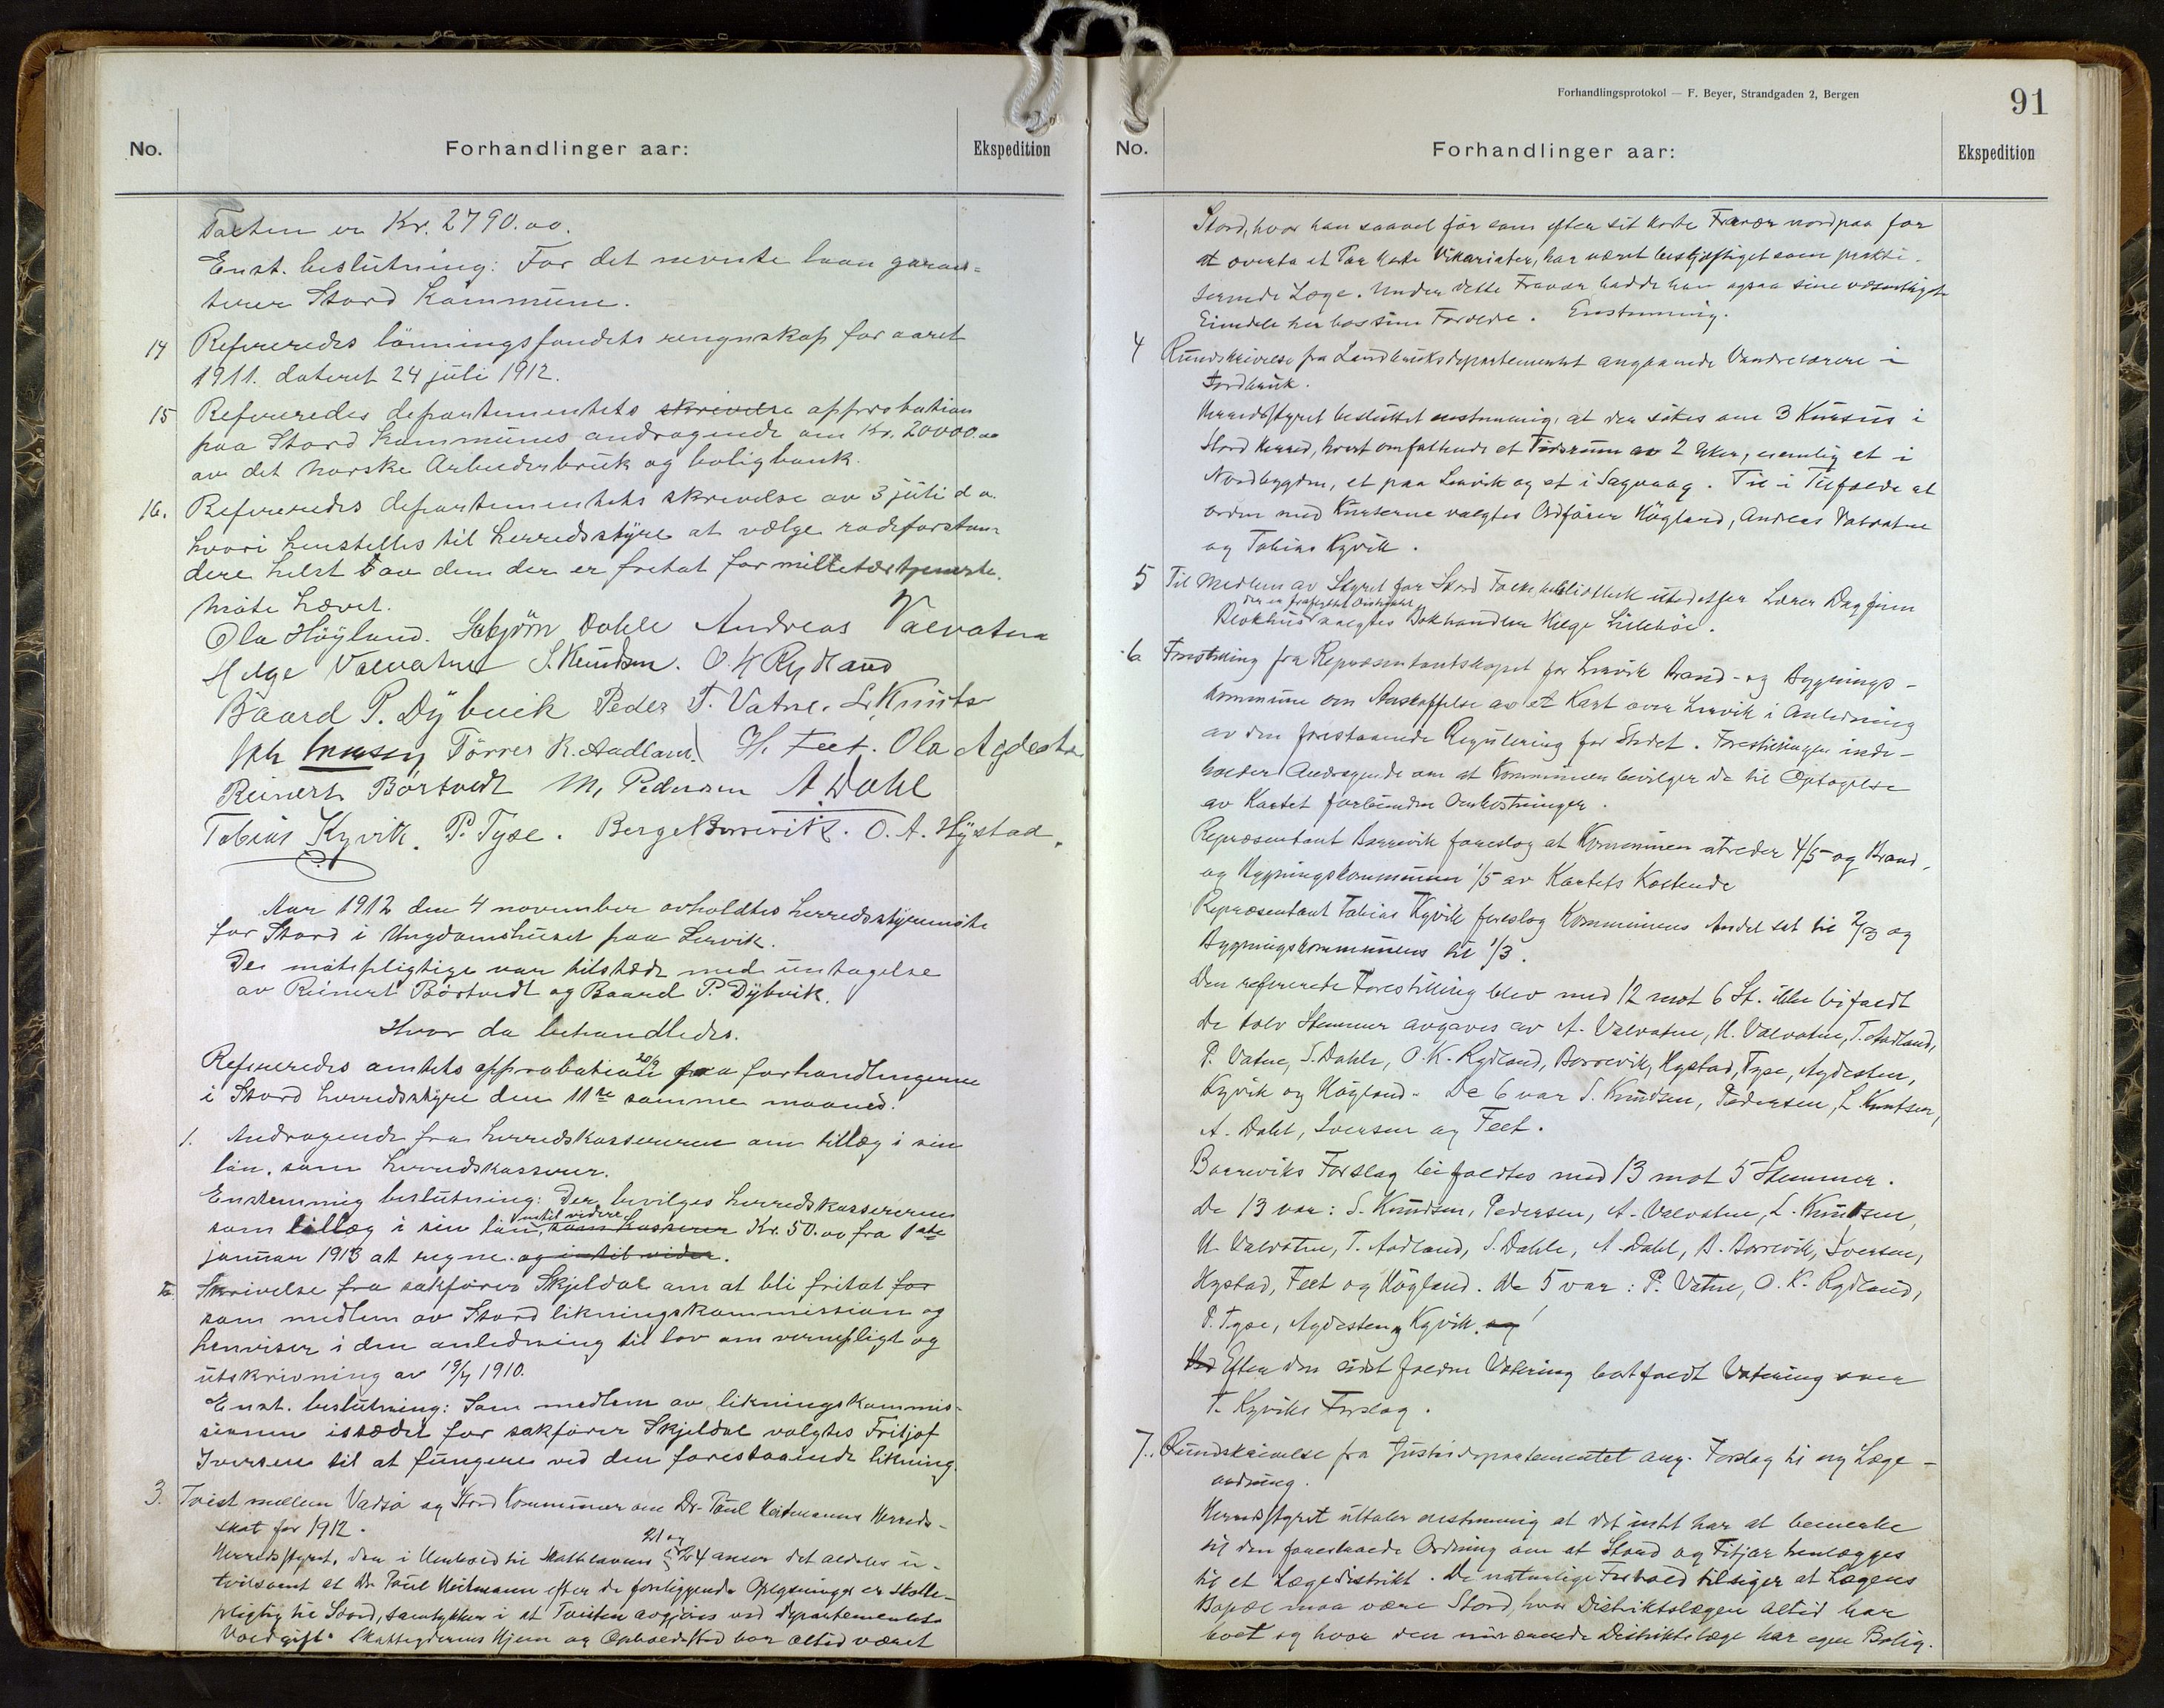 No.
Forhandlinger aar:
Ekspedition
Taxten er Kr. 2790.oo.
Enst. beslutning: For det nevnte laan garan-
terer Stord kommune.
14 Refereredes lönningsfondets rengnskap for aaret
1911. dateret 24 juli 1912.
15 Refereredes departementets skrivelse approbation
paa Stord kommunes andragende om Kr. 20000.oo
av det norske Arbeiderbruk og boligbank.
16. Refereredes departementets skrivelse av 3 juli d a.
hvori henstelles til herredsstyre at vælge rodeforstan-
dere helst av dem der er fritat for millitærtjeneste.
Möte hævet.
Ola Höyland. Asbjörn Dahle Andreas Valvatna
Helge Valvatne S. Knudsen. O. K Rydland
Baard P. Dybvick Peder T. Vatne. L. Knuts
Joh Iversen Törres K. Aadland H. Feet. Ola Agdesten
Reinert Börtvedt M. Pedersen A. Dahl
Tobias Kyvik. P. Tyse. Berge Borrevik. O. A. Hystad.
Aar 1912 den 4 november avholdtes herredsstyremöte
for Stord i Ungdomshuset paa Lervik.
De mötepligtige var tilstæde med untagelse
av Reinert Börtvedt og Baard P. Dybvik.
Hvor da behandledes.
Refereredes amtets approbation 20/9 paa forhandlingerne
i Stord herredsstyre den 11te samme maaned.
1. Andragende fra herredskassereren om tillæg i sin
lön. som herredskasserer.
Enstemmig beslutning: Der bevilges herredskassereren
intil videre
som tillæg i sin lön, som kasserer Kr. 50.oo fra 1ste
januar 1913 at regne. og intil vider.
2. Skrivelse fra sakförer Skjeldal om at bli fritat for
som medlem av Stord likningskommission og
henviser i den anledning til lov om vernepligt og
utskrivning av 19/7 1910.
Enst. beslutning: Som medlem av likningskommis-
sionen istædet for sakförer Skjeldal valgtes Fritjof
Iversen til at fungere ved den forestaaende likning.
3. Tvist mellem Vadsö og Stord kommuner om Dr. Paul Heitmanns Herreds-
skat for 1912.
21 og
Herredsstyret, der i Henhold til Skattelovens § 24 anser det aldeles u-
tvilsomt at Dr. Paul Heitmann efter de foreliggende Oplysninger er skatte-
pligtig til Stord, samtykker i at Tvisten avgjöres ved Departementets
Voldgift. Skatteyderens Hjem og Opholdssted har altid været
Forhandlingsprotokol — F. Beyer, Strandgaden 2, Bergen
91
No.
Forhandlinger aar:
Ekspedition
Stord, hvor han saavel för som efter sit korte Fravær nordpaa for
at overta et Par korte Vikariater, har været beskjæftiget som prakti-
serende Læge. Under dette Fravær hadde han ogsaa sine væsentligste
Eiendele her hos sine Forældre. Enstemmig.
4 Rundskrivelse fra Landbruksdepartementet angaaende Vandrelærere i
Jordbruk.
Herredsstyret besluttet enstemmig, at der sökes om 3 Kursus i
Stord Herred, hvert omfattende et Tidsrum av 2 Uker, nemlig et i
Nordbygden, et paa Lervik og et i Sagvaag. Til i Tilfælde at
ordne med Kurserne valgtes Ordförer Höyland, Andreas Valvatne
og Tobias Kyvik.
5 Til Medlem av Styret for Stord Folkebibliothek istedetfor Lærer Dagfinn
der er fraflyttet Distriktet
Blokhus valgtes Bokhandler Helge Lillebö.
6 Forestilling fra Repræsentantskapet for Lervik Brand- og Bygnings-
kommune om Anskaffelse av et Kart over Lervik i Anledning
av den forestaaende Regulering for Stedet. Forestillingen inde-
holder Andragende om at Kommunen bevilger de til Optagelse
av Kartet forbundne Omkostninger.
Repræsentant Borrevik foreslog at Kommunen utreder 4/5 og Brand-
og Bygningskommunen 1/5 av Kartets Kostende
Repræsentant Tobias Kyvik foreslog Kommunens Andel sat til 2/3 og
Bygningskommunens til 1/3.
Den refererte Forestilling blev med 12 mot 6 St. ikke bifaldt
De tolv Stemmer avgaves av A. Valvatne, H. Valvatne, T. Aadland,
P. Vatne, S. Dahle, O. K. Rydland, Borrevik, Hystad, Tyse, Agdesten,
Kyvik og Höyland. De 6 var S. Knudsen, Pedersen, L. Knutsen,
A. Dahl, Iversen og Feet.
Borreviks Forslag bifaldtes med 13 mot 5 Stemmer.
De 13 var: S. Knudsen, Pedersen, A. Valvatne, L. Knutsen,
H. Valvatne, T. Aadland, S. Dahle, A. Dahl, B. Borrevik, Iversen,
Hystad, Feet og Höyland. De 5 var: P. Vatne, O. K. Rydland,
P. Tyse, Agdesten og Kyvik. og
Ved Efter den sidst faldne Votering bortfaldt Votering over
T. Kyviks Forslag.
7. Rundskrivelse fra Justisdepartementet ang. Forslag til ny Læge-
ordning.
Herredsstyret uttaler enstemmig at det intet har at bemerke
til den foreslaaede Ordning om at Stord og Fitjar henlægges
til et Lægedistrikt. De naturlige Forhold tilsiger at Lægens
Bopæl maa være Stord, hvor Distriktslægen altid har
boet og hvor den nuværende Distriktslæge har egen Bolig.